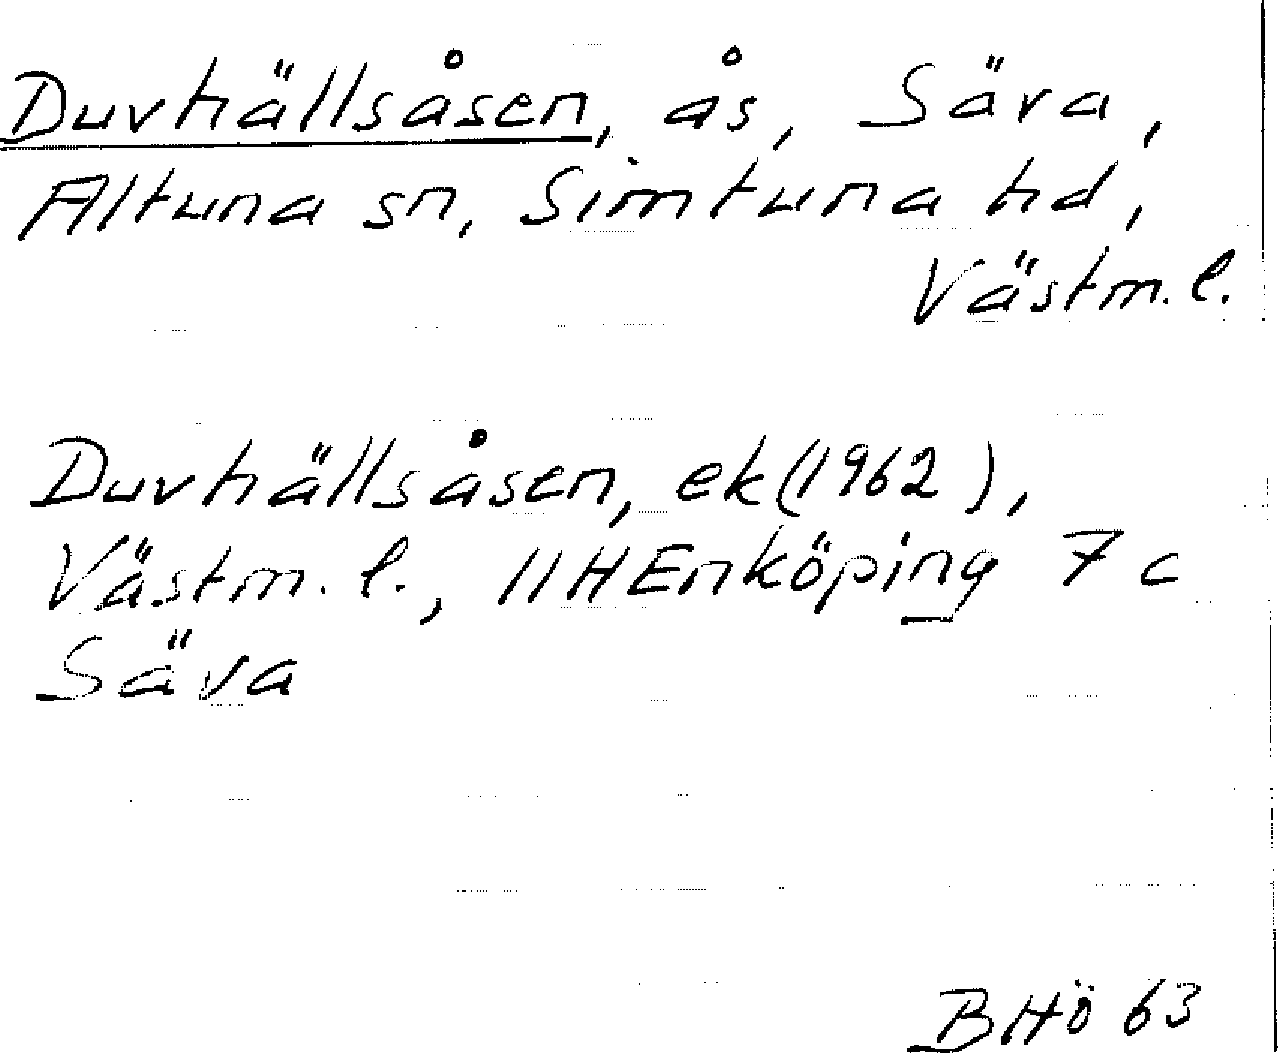 Duvhällsåsen, ås, Säva,
Altuna sn, Simtuna hd,
Västm. l.
Duvhällsåsen, ek (1962),
Västm. l., 11H Enköping 7 c
Säva
BHö 63